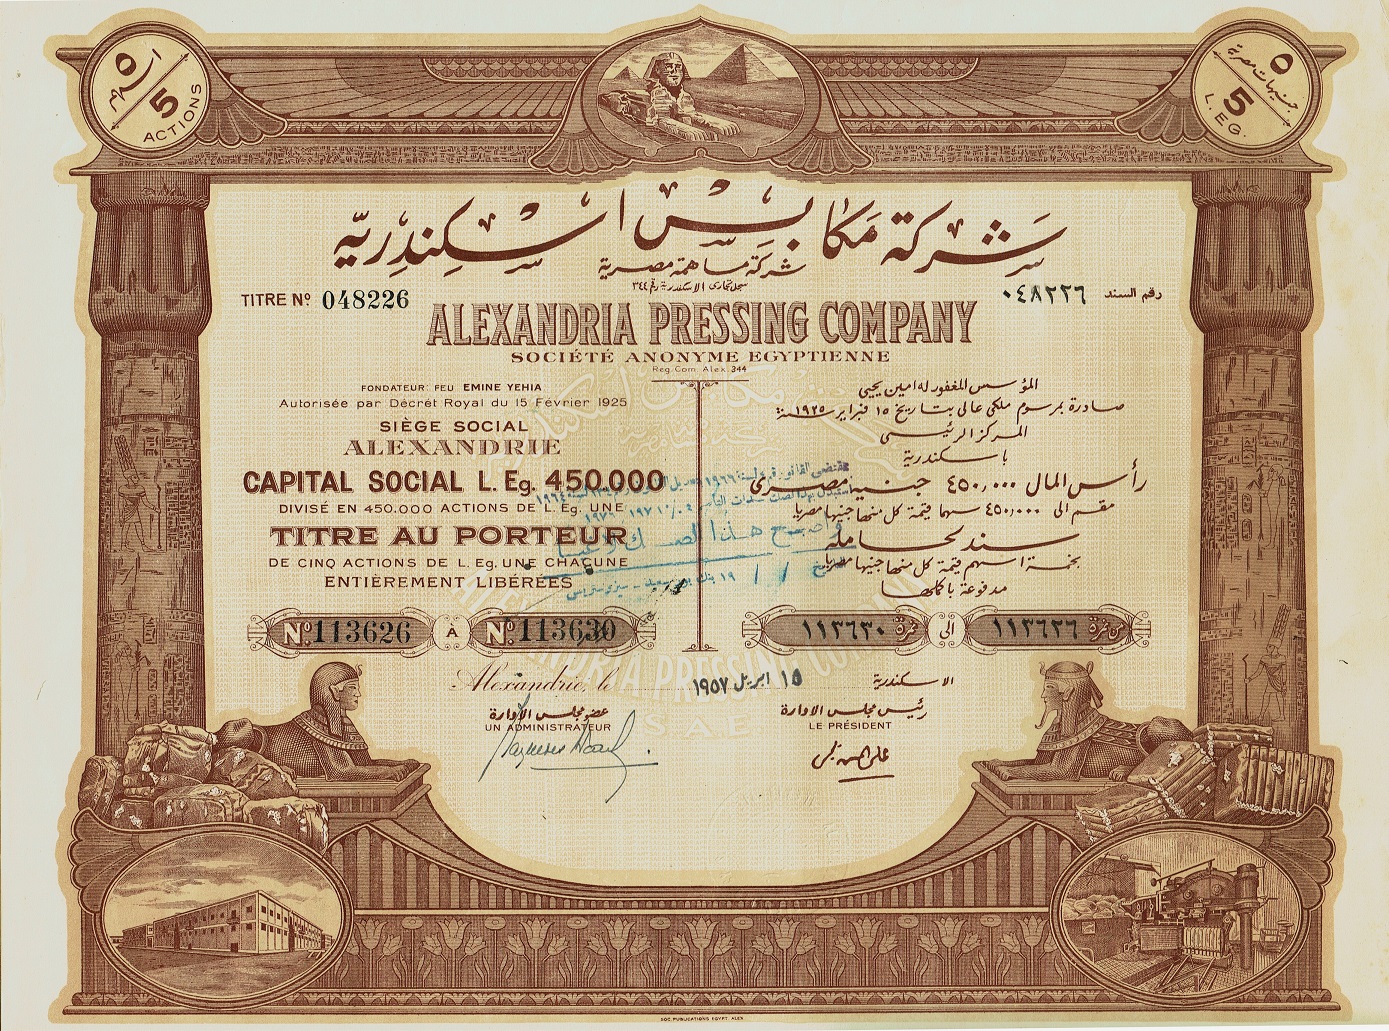 ٥ اسهم
5
ACTIONS
٥ جنيهات مصرية
5
L. EG.
شركة مكابس اسكندرية
شركة مساهمة مصرية
سجل تجارى الاسكندرية رقم ٣٤٤
TITRE Nº 048226
رقم السند ٠٤٨٢٢٦
ALEXANDRIA PRESSING COMPANY
SOCIÉTÉ ANONYME EGYPTIENNE
Reg. Com. Alex. 344
FONDATEUR: FEU EMINE YEHIA
Autorisée par Décrét Royal du 15 Février 1925
SIÈGE SOCIAL
ALEXANDRIE
CAPITAL SOCIAL L. Eg. 450.000
DIVISÉ EN 450.000 ACTIONS DE L. Eg. UNE
TITRE AU PORTEUR
DE CINQ ACTIONS DE L. Eg. UNE CHACUNE
ENTIÈREMENT LIBÉRÉES
المؤسس المغفور له امين يحيى
صادرة بمرسوم ملكى عالى بتاريخ ١٥ فبراير سنة ١٩٢٥
المركز الرئيسى
باسكندرية
رأس المال ٤٥٠,٠٠٠ جنيه مصرى
مقسم الى ٤٥٠,٠٠٠ سهما قيمة كل منها جنيها مصريا
سند لحامله
بخمسة اسهم قيمة كل منها جنيها مصريا
مدفوعة باكملها
واصبح هذا الصك لاغيا
Nº 113626 À Nº 113630
من نمرة ١١٣٦٢٦ الى نمرة ١١٣٦٣٠
Alexandrie, le
الاسكندرية ١٥ ابريل ١٩٥٧
عضو مجلس الادارة
UN ADMINISTRATEUR
رئيس مجلس الادارة
LE PRÉSIDENT
ALEXANDRIA PRESSING COMPANY
S.A.E
SOC. PUBLICATIONS EGYPT. ALEX.